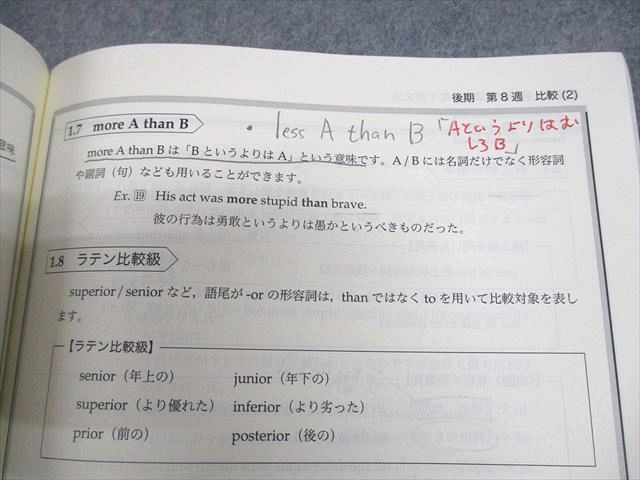 後期 第8週 比較(2)
1.7 more A than B
・less A than B 「AというよりはむしろB」
more A than B は「B というよりは A」という意味です。A / B には名詞だけでなく形容詞
や副詞（句）なども用いることができます。
Ex. 19 His act was more stupid than brave.
彼の行為は勇敢というよりは愚かというべきものだった。
1.8 ラテン比較級
superior / senior など，語尾が -or の形容詞は，than ではなく to を用いて比較対象を表し
ます。
【ラテン比較級】
senior（年上の） junior（年下の）
superior（より優れた） inferior（より劣った）
prior（前の） posterior（後の）
意味